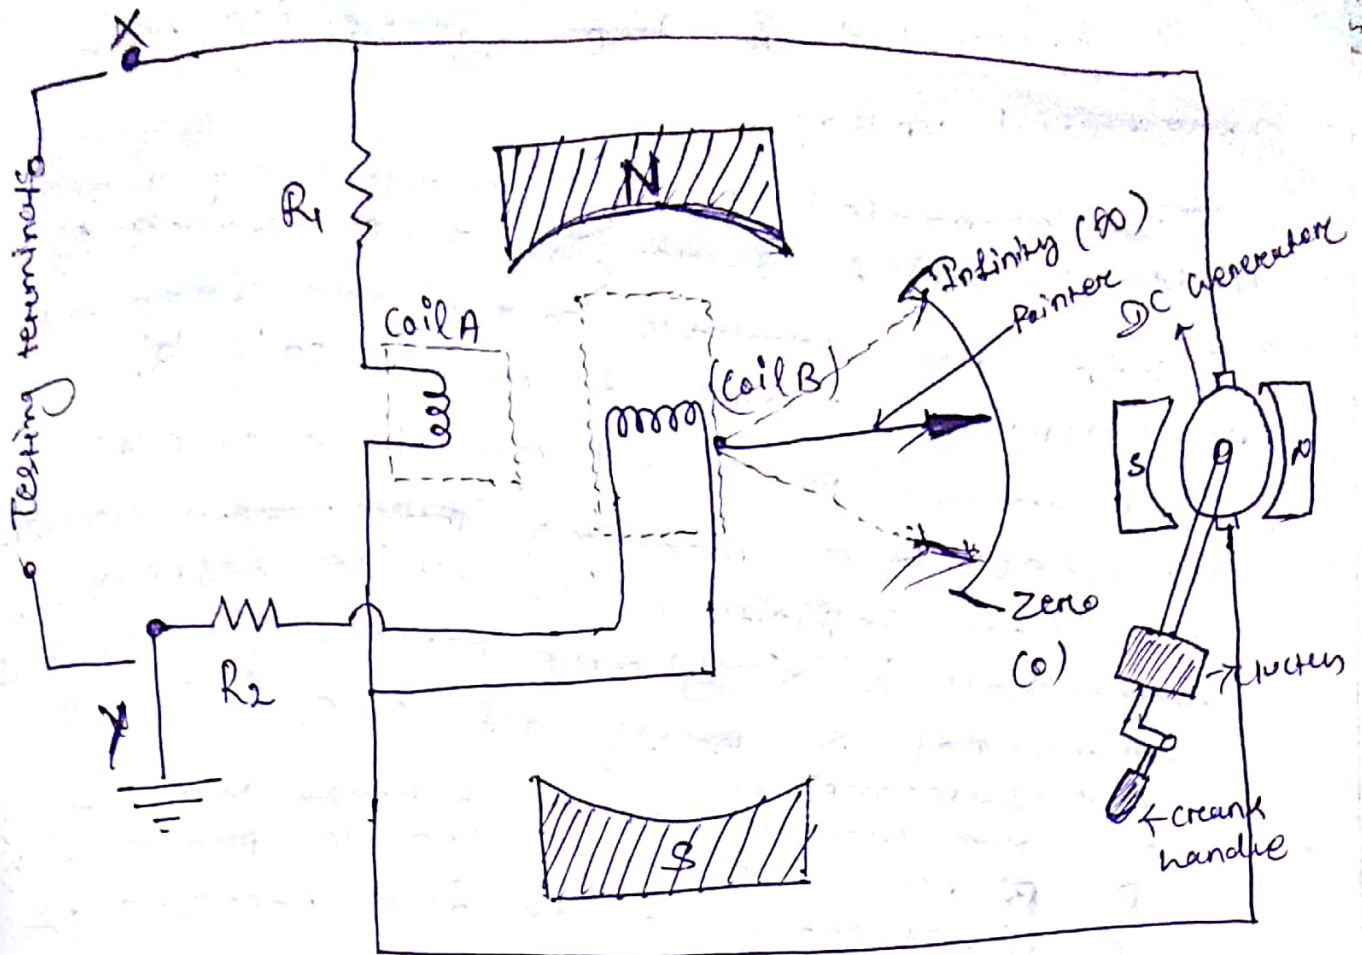 X
Testing terminals
R1
N
Coil A
(Coil B)
Infinity (∞)
Pointer
DC Generator
S
N
Zero
(0)
R2
Y
S
Crank
handle